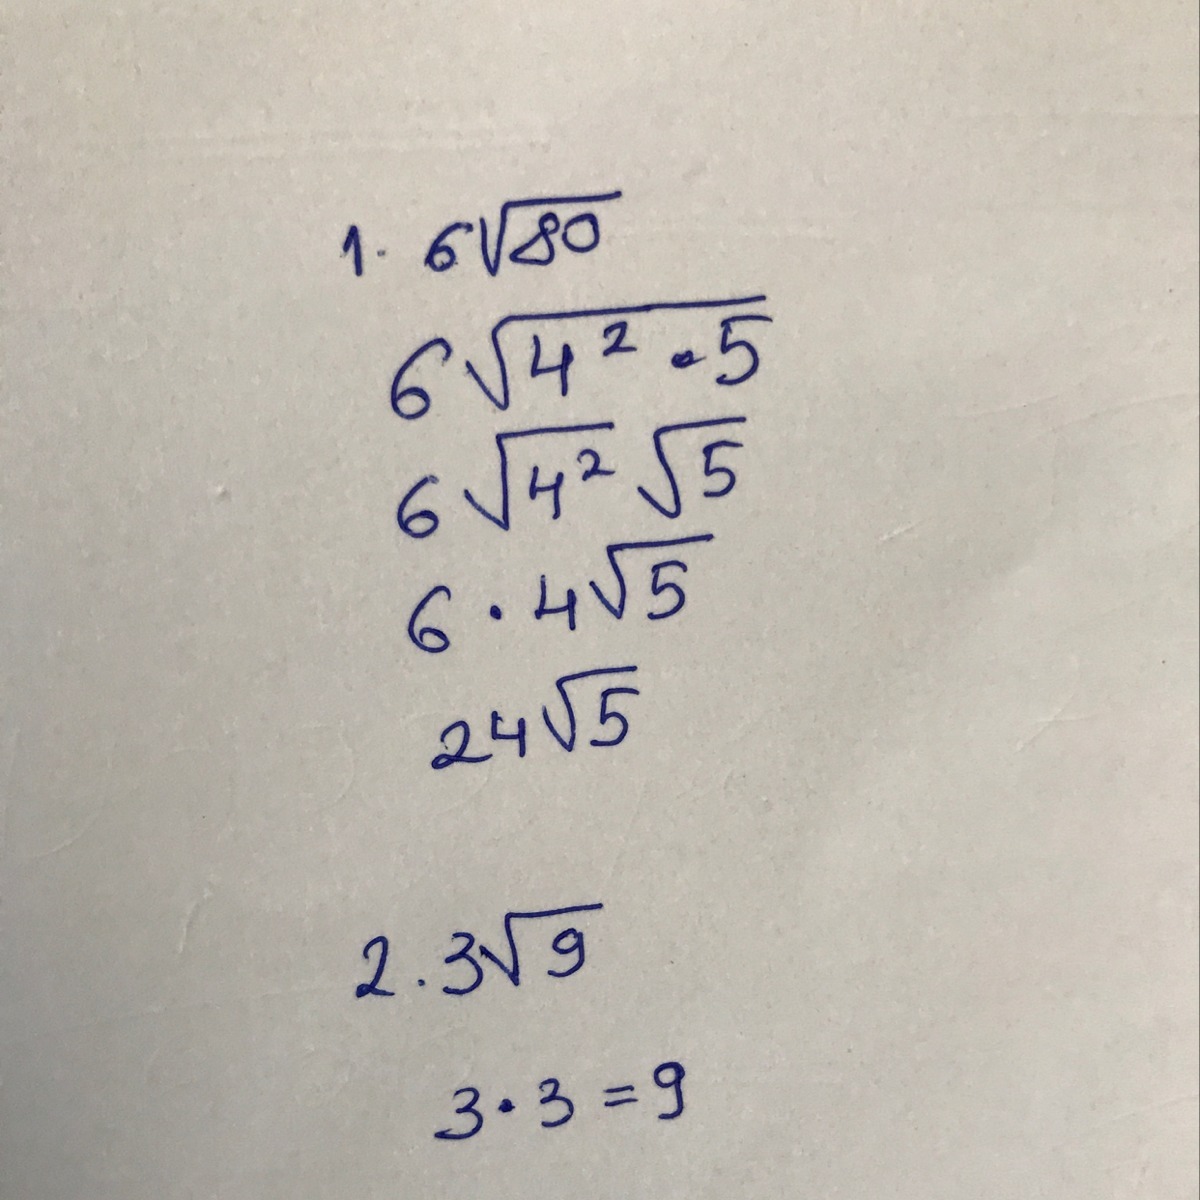 1. 6√80
6√4² · 5
6√4² √5
6 · 4√5
24√5
2. 3√9
3 · 3 = 9